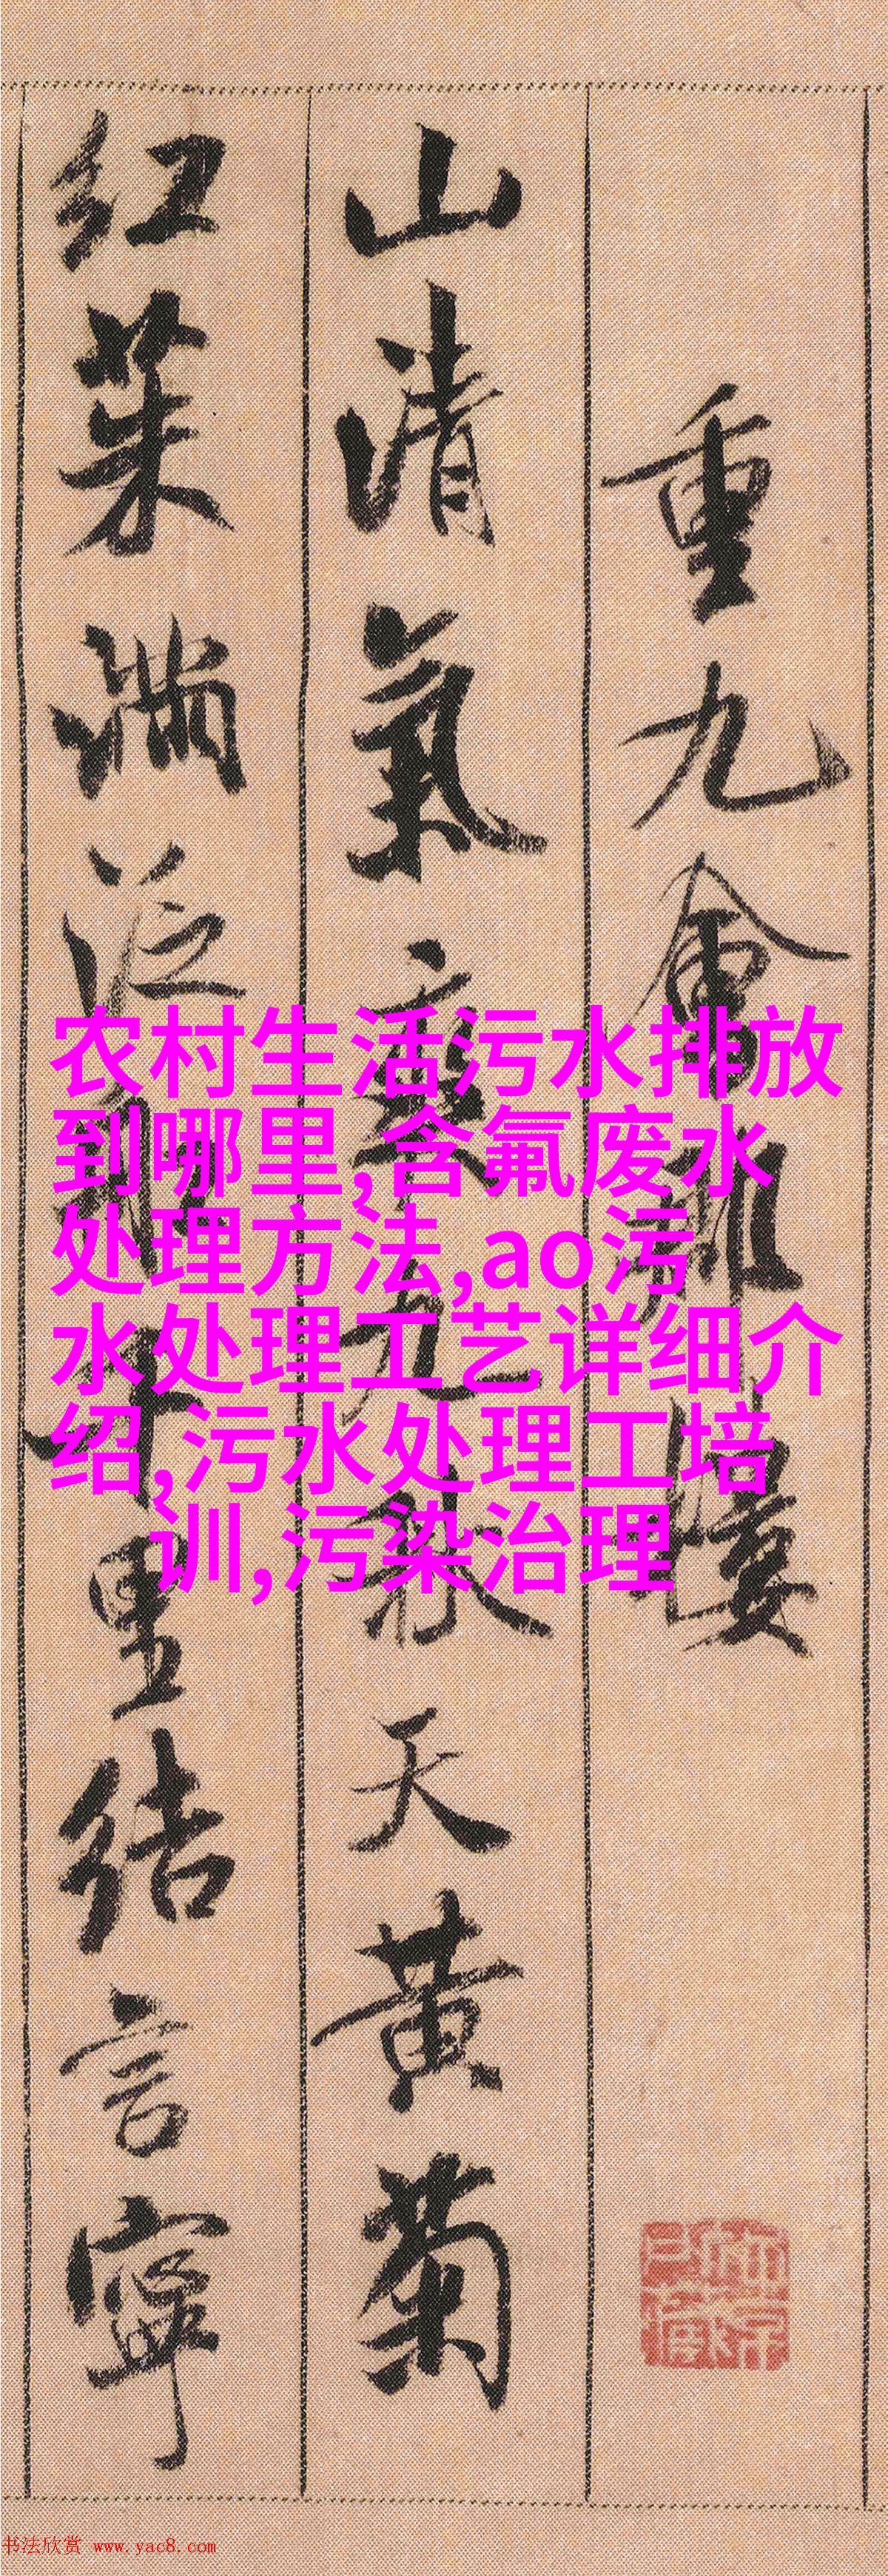 重九會郡樓
山清氣爽九秋天黃菊
紅茱滿泛船千里結言寧
农村生活污水排放
到哪里,含氟废水
处理方法,ao污
水处理工艺详细介
绍,污水处理工培
训,污染治理
书法欣赏 www.yac8.com